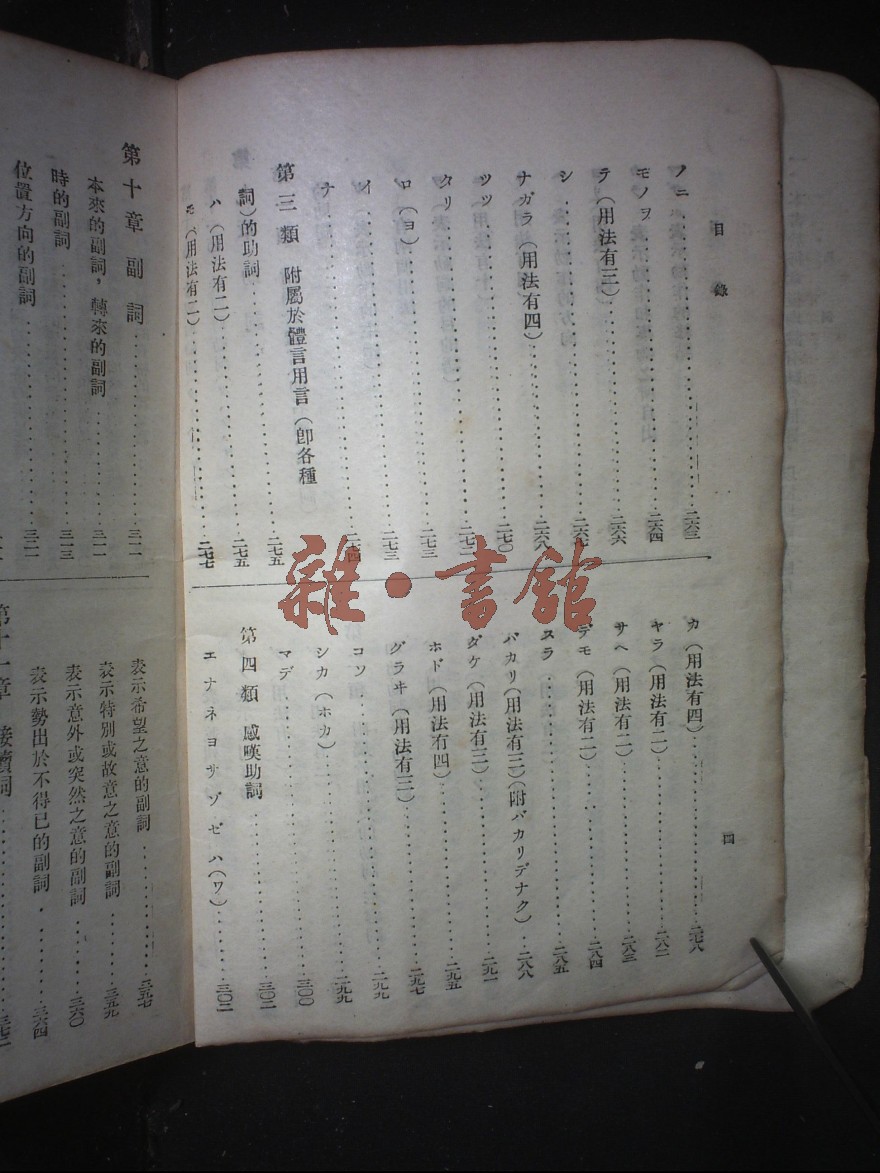 目錄
四
ノニ……二六三
モノヲ……二六四
テ(用法有三)……二六六
シ……二六七
ナガラ(用法有四)……二六八
ツツ……二七〇
タリ……二七二
ロ(ヨ)……二七三
イ……二七三
ナ……二七四
第三類 附屬於體言用言(卽各種
詞)的助詞……二七五
ハ(用法有二)……二七五
モ(用法有二)……二七七
カ(用法有四)……二七八
ヤラ(用法有二)……二八二
サヘ(用法有二)……二八三
デモ(用法有二)……二八四
スラ……二八五
バカリ(用法有三)(附バカリデナク)……二八八
ダケ(用法有三)……二九一
ホド(用法有四)……二九五
グラヰ(用法有三)……二九七
コソ……二九九
シカ(ホカ)……二九九
マデ……三〇〇
第四類 感嘆助詞……三〇二
エナネヨサゾゼハ(ワ)……三〇二
第十章 副詞……三一一
本來的副詞,轉來的副詞……三一一
時的副詞……三一三
位置方向的副詞……三二一
表示希望之意的副詞……三五七
表示特別或故意之意的副詞……三五九
表示意外或突然之意的副詞……三六〇
表示勢出於不得已的副詞……三六四
第十一章 接續詞
雜·書館